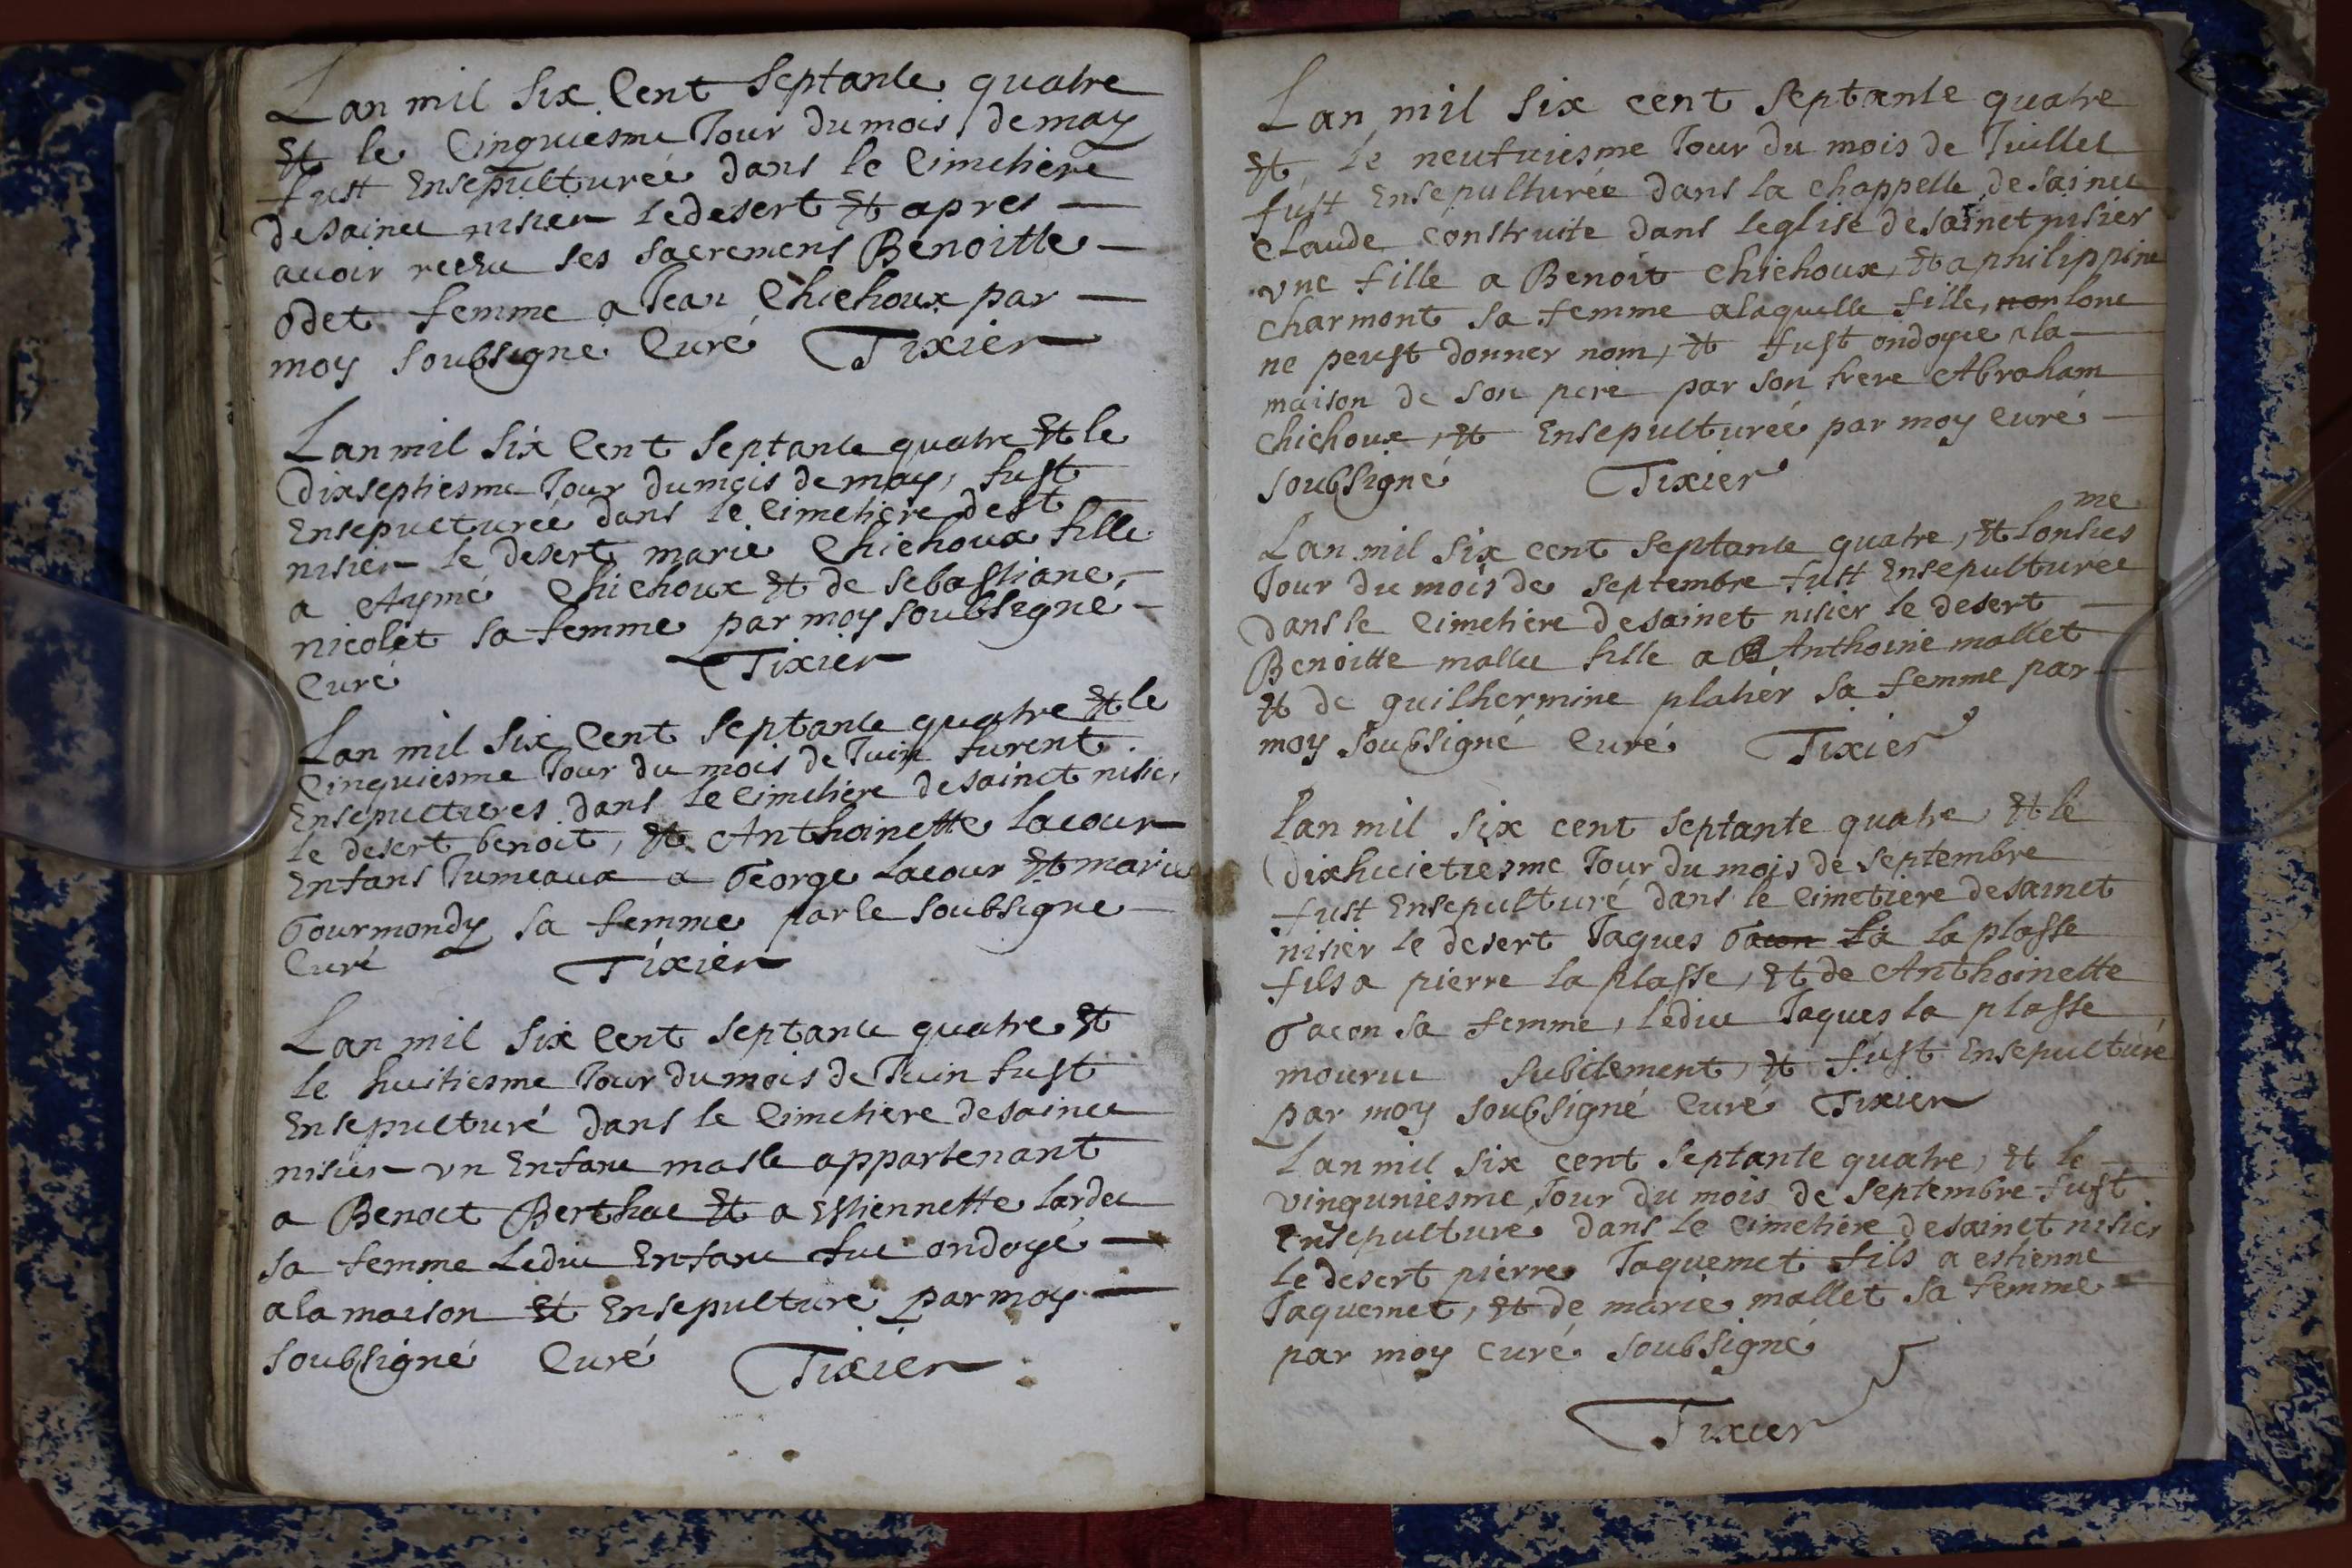 Lan mil six Cent septante quatre
Et le Cinquiesme Jour du mois de may
fust Ensepulturée dans le Cimetiere
de sainct nisier le desert Et apres
avoir receu ses sacremens Benoitte
odet femme a Jean Chichoux par
moy soubsigne Curé Tixier
Lan mil six Cent septante quatre Et le
dixseptiesme Jour du mois de may, fust
Ensepulturée dans le Cimetiere de st
nisier le desert marie Chichoux fille
a Aymé Chichoux Et de sebastiane
nicolet sa femme par moy soubsegné
Curé Tixier
Lan mil six Cent septante quatre Et le
Cinquiesme Jour du mois de Juin furent
Ensepultures dans le Cimetiere de sainct nisier
le desert benoit, Et Anthoinette lacour
Enfans Jumeaux a George lacour Et marie
Gourmondy sa femme par le soubsigne
Curé Tixier
Lan mil six Cent septante quatre Et
le huitiesme Jour du mois de Juin fust
Ensepulturé dans le Cimetiere de sainct
nisier un Enfant masle appartenant
a Benoit Berthat Et a Estiennette lardet
sa femme ledit Enfant fut ondoyé
a la maison Et Ensepulturé par moy
soubsigné Curé Tixier
Lan mil six cent septante quatre
Et le neufuiesme Jour du mois de Juillet
fust Ensepulturée dans la chappelle de sainct
Claude construite dans leglise de sainct nisier
une fille a Benoit Chichoux, Et a philippine
charmont sa femme a laquelle fille, non lont
ne peust donner nom, Et fust ondoyée a la
maison de son pere par son frere Abraham
Chichoux, Et Ensepulturée par moy Curé
soubsigné Tixier
Lan mil six cent septante quatre, Et lonsies me
Jour du mois de septembre fust Ensepulturee
dans le Cimetiere de sainct nisier le desert
Benoitte mallet fille a B Anthoine mallet
Et de guilhermine platier sa femme par
moy soubsigné Curé Tixier
Lan mil six cent septante quatre Et le
dixhuictiesme Jour du mois de septembre
fust Ensepulturé dans le Cimetiere de sainct
nisier le desert Jaques Gacon fa la plasse
fils a pierre la plasse, Et de Anthoinette
Gacon sa femme, ledit Jaques la plasse
mourut subitement, Et fust Ensepulturé
par moy soubsigné Curé Tixier
Lan mil six cent septante quatre, Et le
vinguniesme Jour du mois de septembre fust
Ensepulturé dans le Cimetiere de sainct nisier
le desert pierre Jaquemet fils a estienne
Jaquemet, Et de marie mallet sa femme
par moy curé soubsigné
Tixier